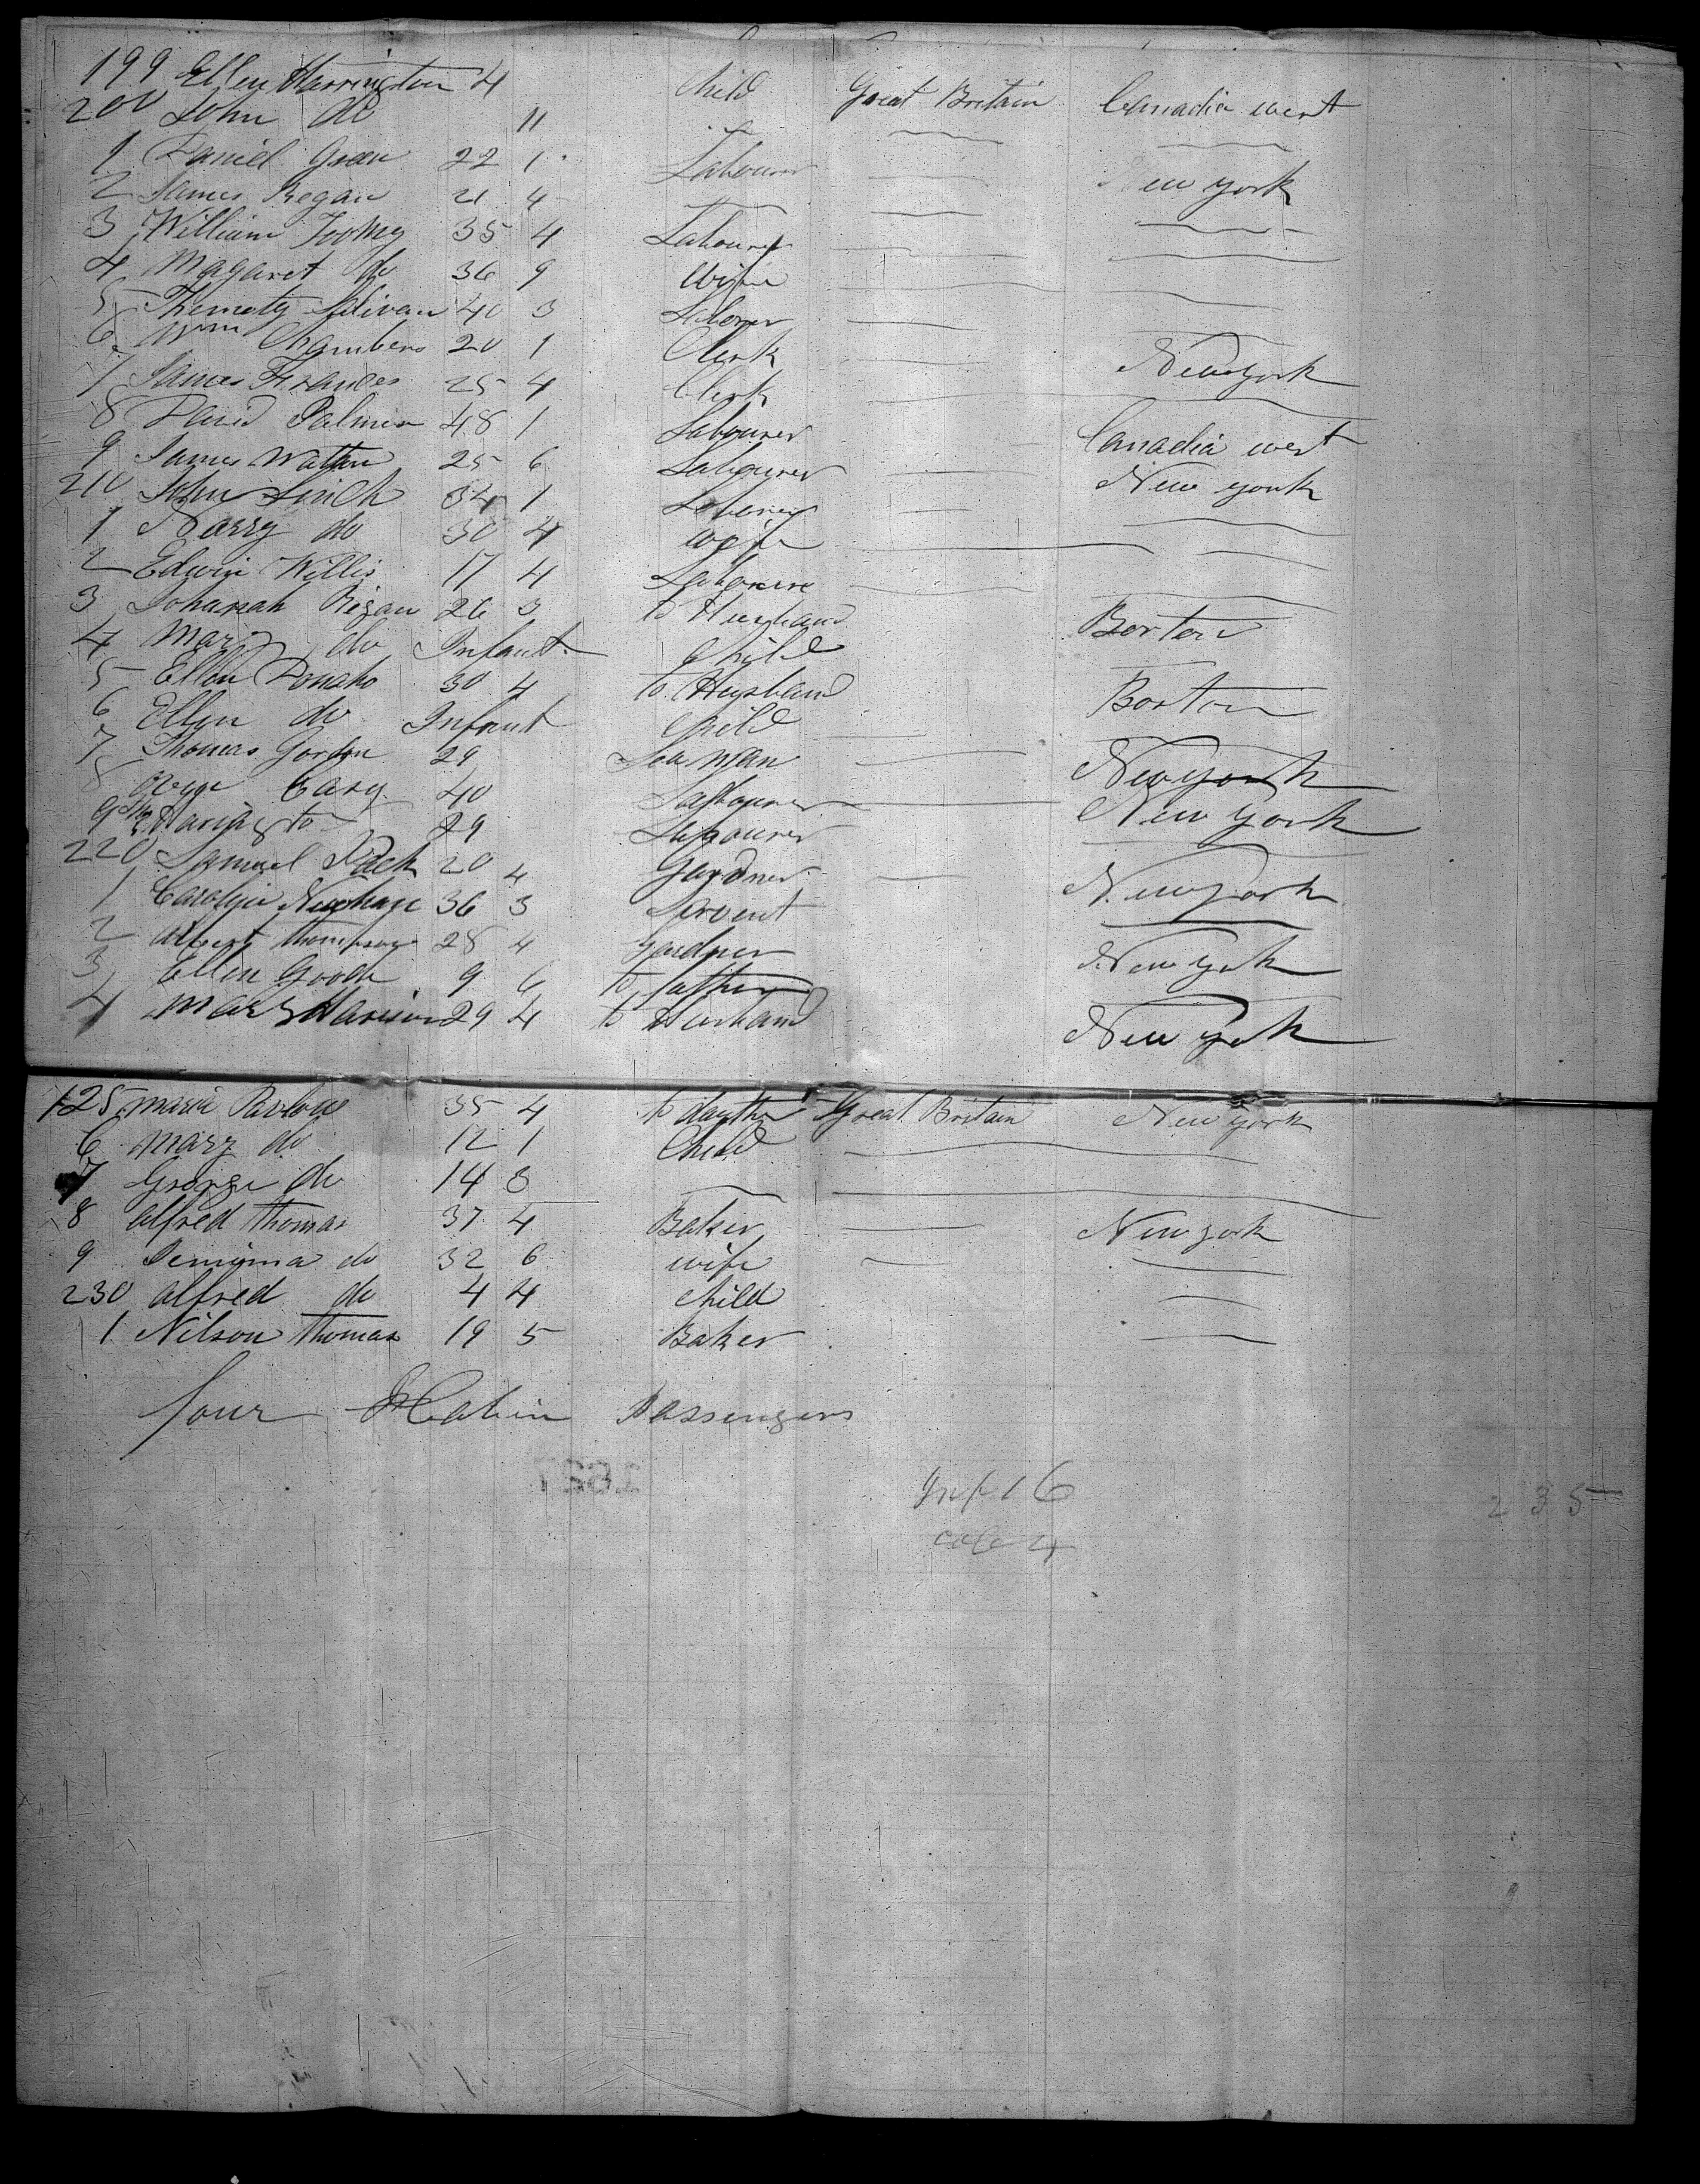 199 Ellen Harrington 4 Child Great Britain Canadia west
200 John do 11
1 Daniel Green 22 1 Labourer New york
2 James Regan 21 4
3 William Toomy 35 4 Labourer
4 Magaret do 36 9 wife
5 Themoty Sulivan 40 3 Laborer
6 Wm Chambers 20 1 Clerk New york
7 James Frances 25 4 Clerk
8 David Palmer 48 1 Labourer Canadia west
9 James 25 6 Labourer New york
210 John Linch 34 1 Laborer
1 do 30 4 wife
2 Edwin Willis 17 4
3 Johanah Regan 26 3 to Husband Boston
4 Mary do Infant Child
5 Ellen Donaho 30 4 to Husband Boston
6 Ellen do Infant Child
7 Thomas Gordon 29 Seaman New york
8 Cary 40 Labourer New york
9 29 Labourer
220 Samuel 20 4 Gardner New york
1 Carolyn 36 3 Servent
2 Albert Thompson 28 4 Gardner New york
3 Ellen Goode 9 6 to father
4 Mary Harison 29 4 to Husband New york
125 maria Barlow 35 4 to daugther Great Britain New york
6 mary do 12 1 Child
7 George do 14 3
8 alfred Thomas 37 4 Baker New york
9 Jemima do 32 6 wife
230 alfred do 4 4 child
1 Nilson Thomas 19 5 Baker
four Cabin Passengers
Inf 16
235
cab 4